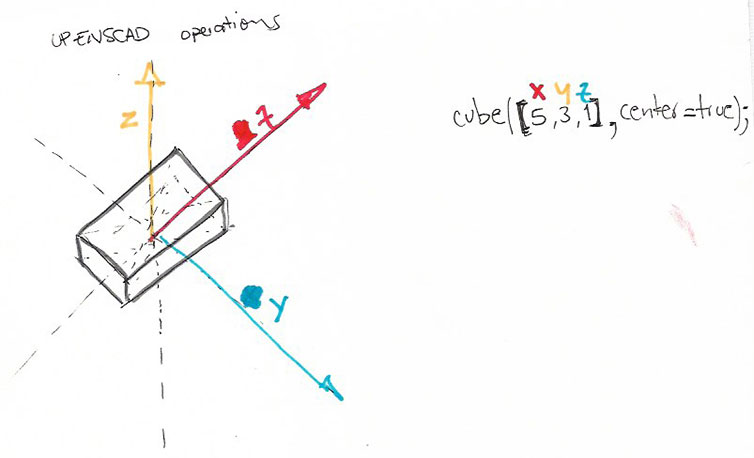 OPENSCAD operations
x y z
cube([5,3,1],center=true);
z
z
y